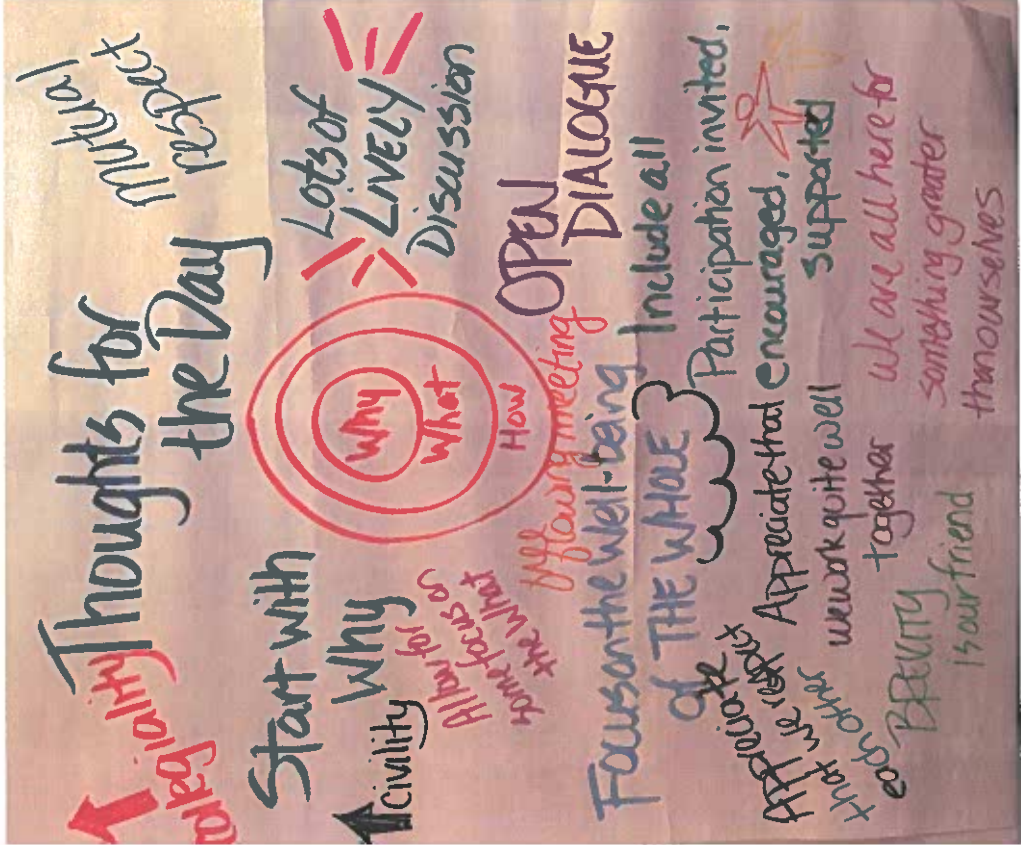 Thoughts for
the Day
mutual
respect
Collegiality
Start with
Why
Civility
Allow for
some focus on
the what
Why
What
How
Lots of
LIVELY
Discussion
OPEN
DIALOGUE
flowing meeting
Focus on the Well-being
of THE WHOLE
Include all
Participation invited,
encouraged,
supported
Appreciate
that we respect
each other
Appreciate that
we work quite well
together
We are all here for
something greater
than ourselves
BREVITY
is our friend